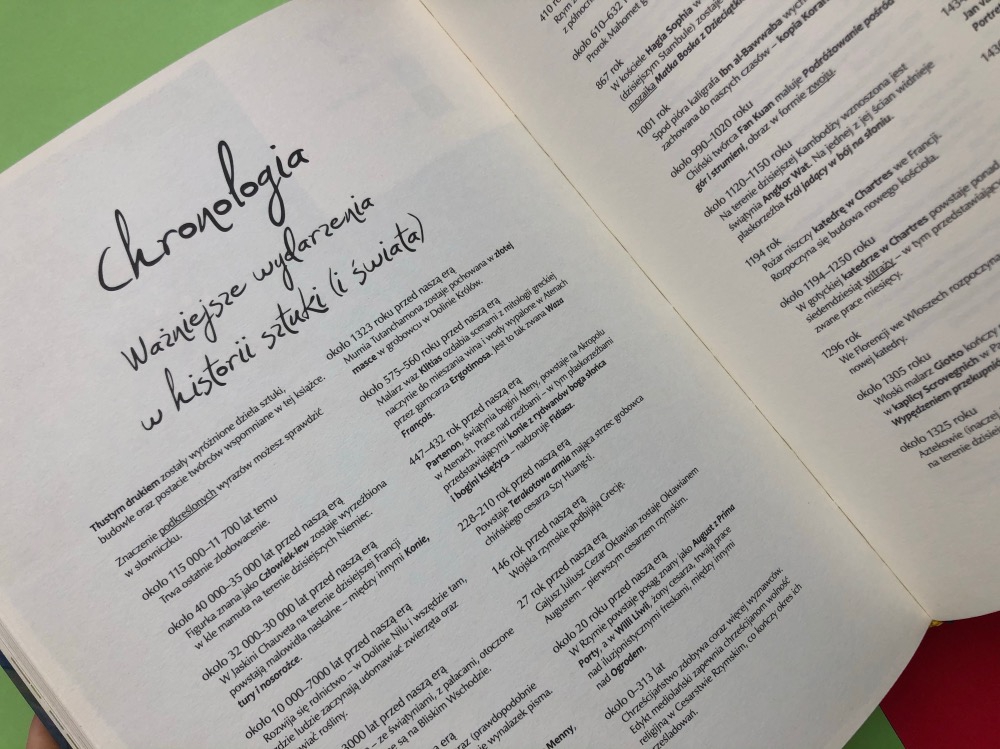 Chronologia
Ważniejsze wydarzenia
w historii sztuki (i świata)
Tłustym drukiem zostały wyróżnione dzieła sztuki,
budowle oraz postacie twórców wspomniane w tej książce.
Znaczenie podkreślonych wyrazów możesz sprawdzić
w słowniczku.
około 115 000–11 700 lat temu
Trwa ostatnie zlodowacenie.
około 40 000–35 000 lat przed naszą erą
Figurka znana jako Człowiek-lew zostaje wyrzeźbiona
w kle mamuta na terenie dzisiejszych Niemiec.
około 32 000–30 000 lat przed naszą erą
W Jaskini Chauveta na terenie dzisiejszej Francji
powstają malowidła naskalne – między innymi Konie,
tury i nosorożce.
około 10 000–7000 lat przed naszą erą
Rozwija się rolnictwo – w Dolinie Nilu i wszędzie tam,
gdzie ludzie zaczynają udomawiać zwierzęta oraz
uprawiać rośliny.
3000 lat przed naszą erą
– ze świątyniami, z pałacami, otoczone
są na Bliskim Wschodzie.
(prawdopodobnie
wynalazek pisma.
Menny,
około 1323 roku przed naszą erą
Mumia Tutanchamona zostaje pochowana w złotej
masce w grobowcu w Dolinie Królów.
około 575–560 roku przed naszą erą
Malarz waz Klitias ozdabia scenami z mitologii greckiej
naczynie do mieszania wina i wody wypalone w Atenach
przez garncarza Ergotimosa. Jest to tak zwana Waza
François.
447–432 rok przed naszą erą
Partenon, świątynia bogini Ateny, powstaje na Akropolu
w Atenach. Prace nad rzeźbami – w tym płaskorzeźbami
przedstawiającymi konie z rydwanów boga słońca
i bogini księżyca – nadzoruje Fidiasz.
228–210 rok przed naszą erą
Powstaje Terakotowa armia mająca strzec grobowca
chińskiego cesarza Szy Huang-ti.
146 rok przed naszą erą
Wojska rzymskie podbijają Grecję.
27 rok przed naszą erą
Gajusz Juliusz Cezar Oktawian zostaje Oktawianem
Augustem – pierwszym cesarzem rzymskim.
około 20 roku przed naszą erą
W Rzymie powstaje posąg znany jako August z Prima
Porty, a w Willi Liwii, żony cesarza, trwają prace
nad iluzjonistycznymi freskami, między innymi
nad Ogrodem.
około 0–313 lat
Chrześcijaństwo zdobywa coraz więcej wyznawców.
Edykt mediolański zapewnia chrześcijanom wolność
religijną w Cesarstwie Rzymskim, co kończy okres ich
prześladowań.
410 rok
Rzym
z północ
około 610–632 r
Prorok Mahomet g
867 rok
W kościele Hagia Sophia w
(dzisiejszym Stambule) zostaje
mozaika Matka Boska z Dzieciątki
1001 rok
Spod pióra kaligrafa Ibn al-Bawwaba wych
zachowana do naszych czasów – kopia Koran
około 990–1020 roku
Chiński twórca Fan Kuan maluje Podróżowanie pośród
gór i strumieni, obraz w formie zwoju.
około 1120–1150 roku
Na terenie dzisiejszej Kambodży wznoszona jest
świątynia Angkor Wat. Na jednej z jej ścian widnieje
płaskorzeźba Król jadący w bój na słoniu.
1194 rok
Pożar niszczy katedrę w Chartres we Francji.
Rozpoczyna się budowa nowego kościoła.
około 1194–1250 roku
W gotyckiej katedrze w Chartres powstaje ponad
siedemdziesiąt witraży – w tym przedstawiające
zwane prace miesięcy.
1296 rok
We Florencji we Włoszech rozpoczyna
nowej katedry.
około 1305 roku
Włoski malarz Giotto kończy
w kaplicy Scrovegnich w Pa
Wypędzeniem przekupni
około 1325 roku
Aztekowie (inacze
na terenie dzisie
1434
Jan v
Portre
143